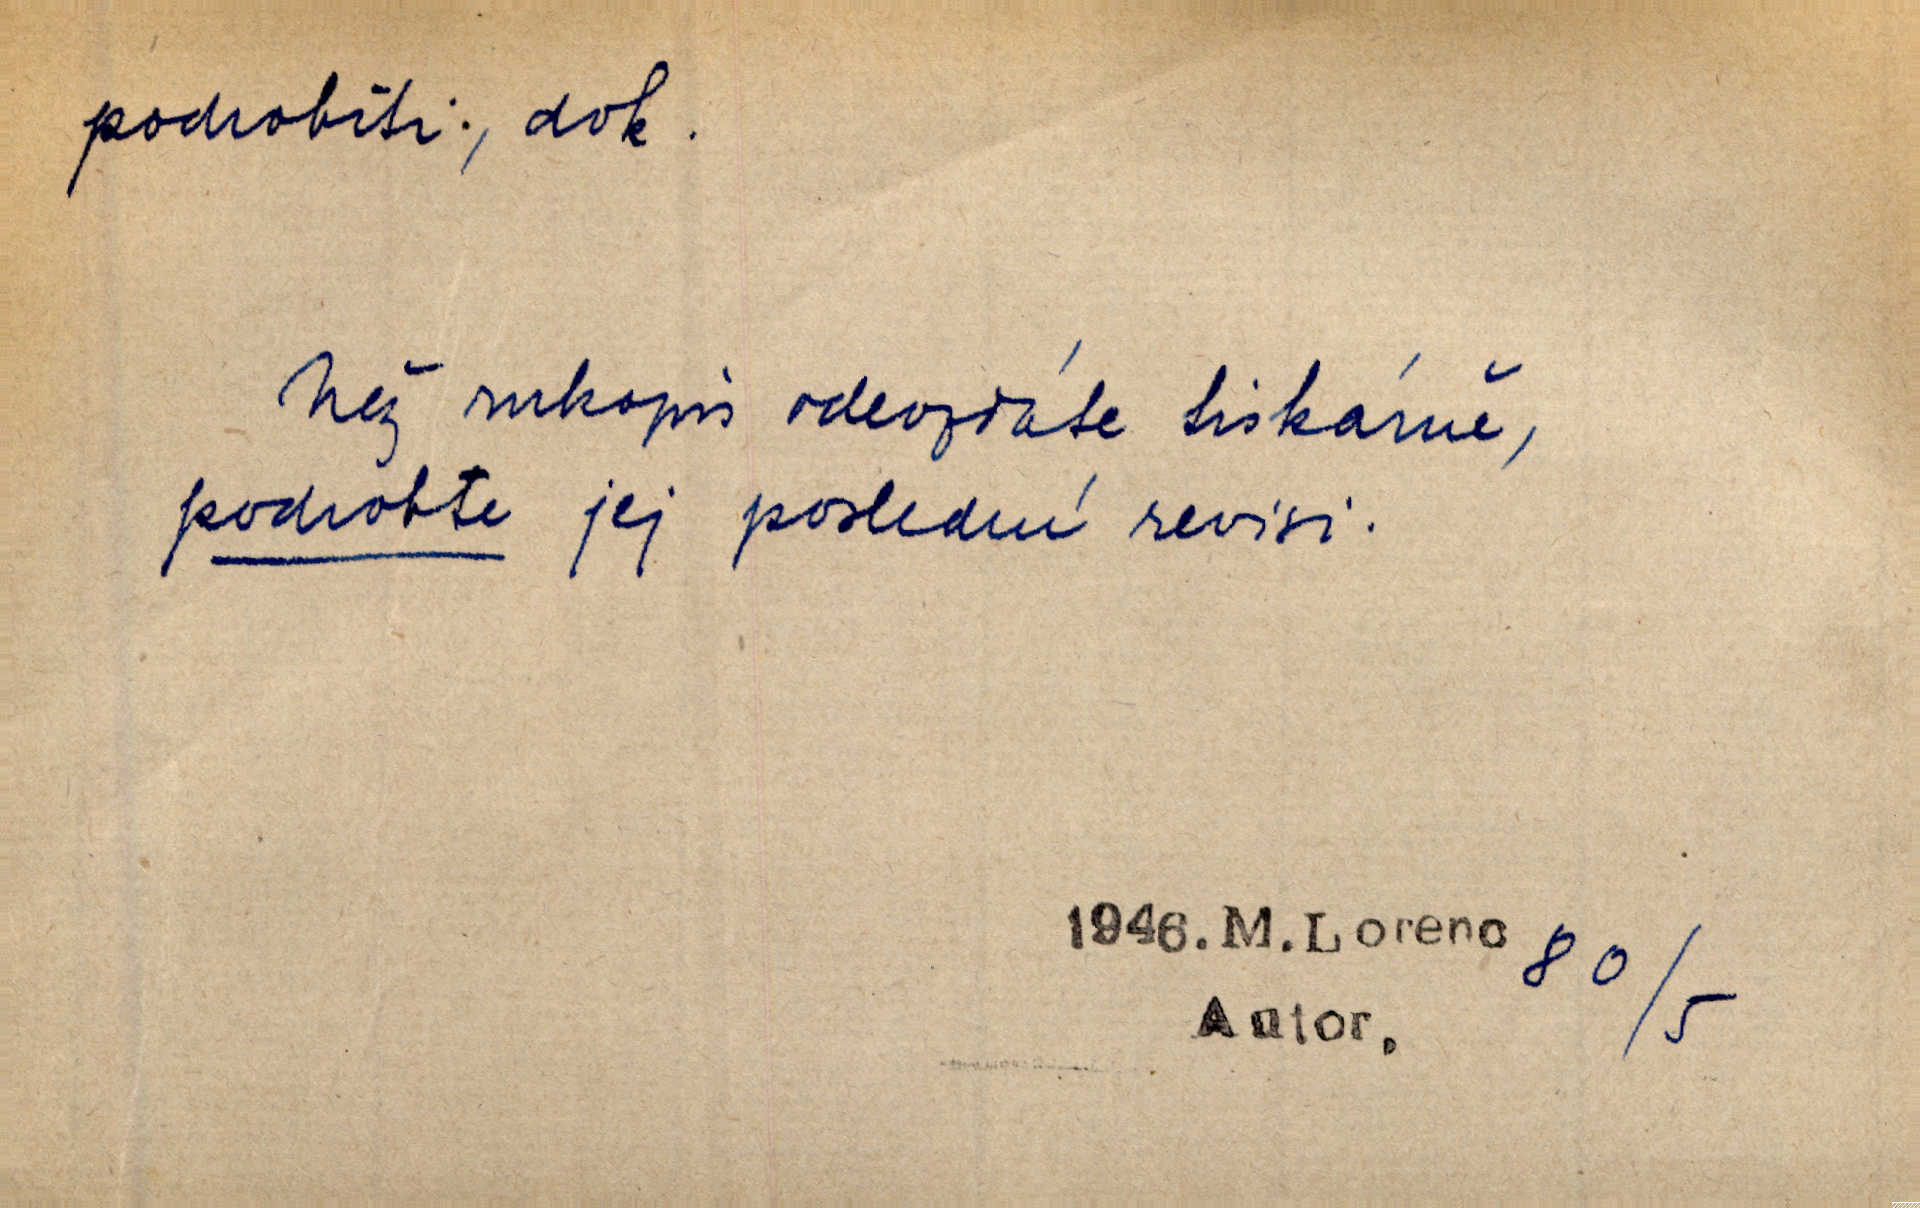 podrobiti, dok.
Než rukopis odevzdáte tiskárně,
podrobte jej poslední revisi.
1946. M. Lorenc 80/5
Autor.